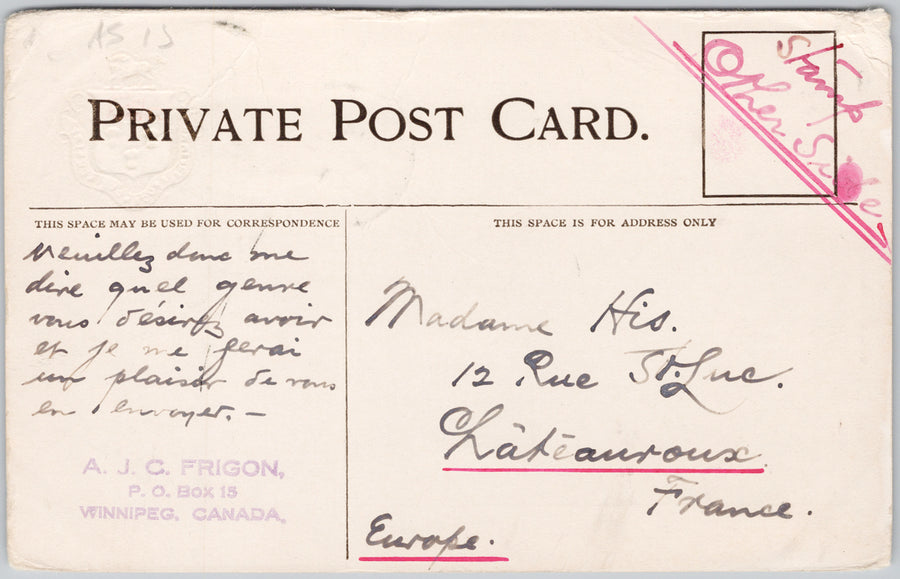 AS 15
PRIVATE POST CARD.
Stamp
Other Side
THIS SPACE MAY BE USED FOR CORRESPONDENCE
THIS SPACE IS FOR ADDRESS ONLY
Veuillez donc me
dire quel genre
vous désirez avoir
et je me ferai
un plaisir de vous
en envoyer. —
A. J. C. FRIGON,
P. O. BOX 15
WINNIPEG, CANADA,
Madame His.
12 Rue St. Luc.
Châteauroux
France.
Europe.